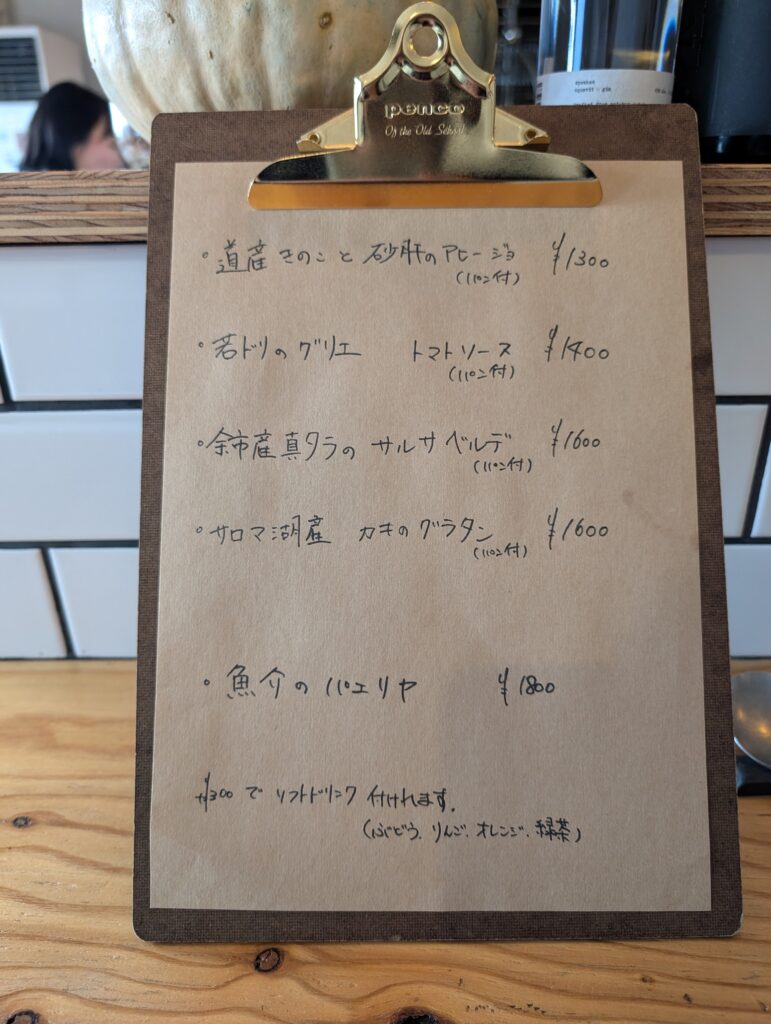 penco
Of the Old School
・道産きのこと砂肝のアヒージョ ¥1300
(パン付)
・若ドリのグリエ トマトソース ¥1400
(パン付)
・余市産真タラの サルサベルデ ¥1600
(パン付)
・サロマ湖産 カキのグラタン ¥1600
(パン付)
・魚介のパエリヤ ¥1800
+¥300で ソフトドリンク 付けれます。
(ぶどう、りんご、オレンジ、緑茶)